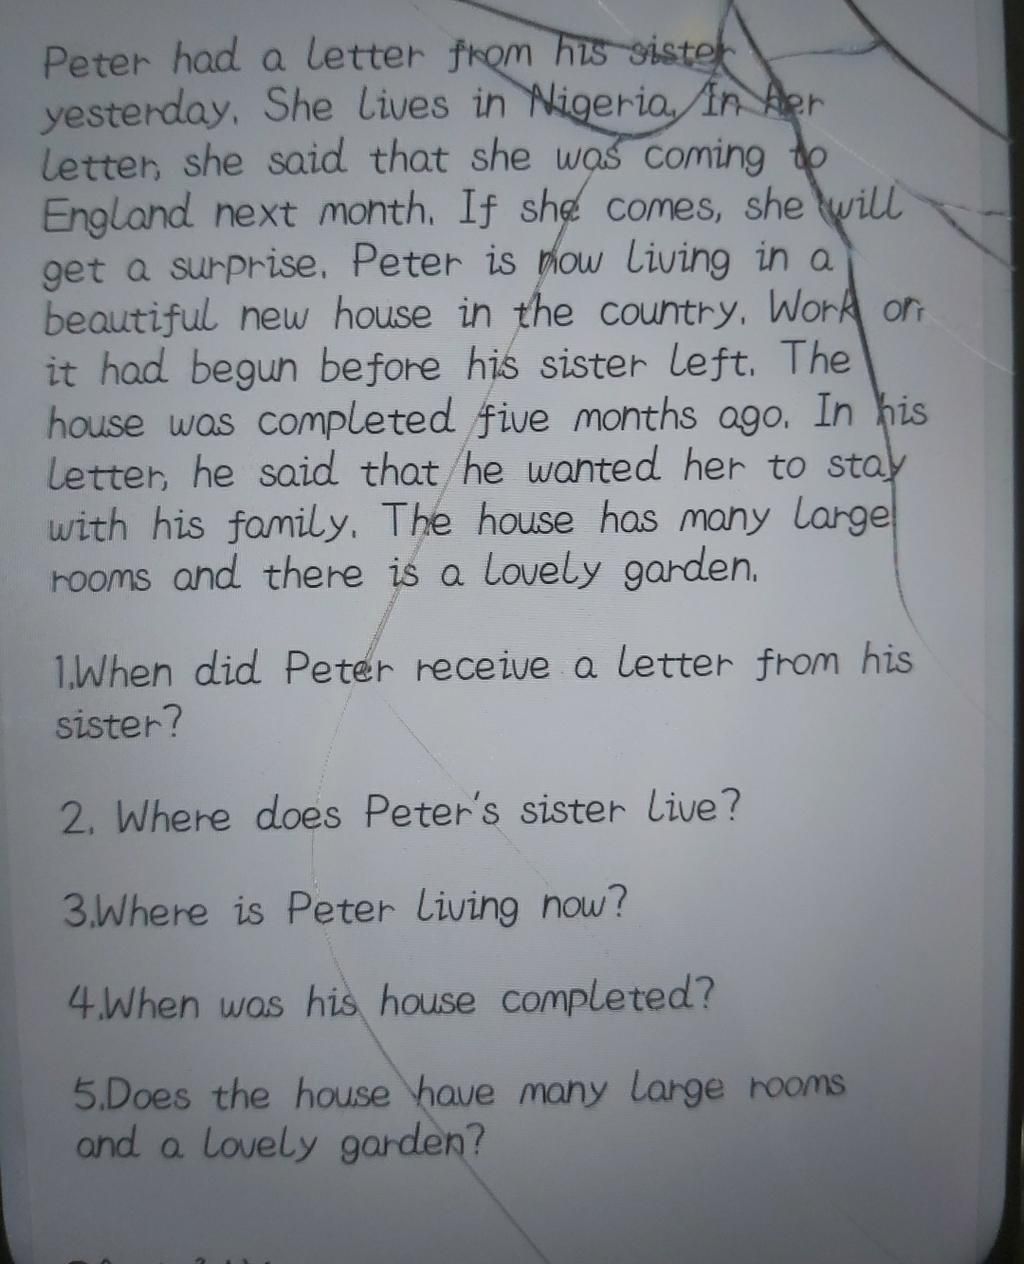 Peter had a letter from his sister
yesterday. She lives in Nigeria. In her
letter, she said that she was coming to
England next month. If she comes, she will
get a surprise. Peter is now living in a
beautiful new house in the country. Work on
it had begun before his sister left. The
house was completed five months ago. In his
letter, he said that he wanted her to stay
with his family. The house has many large
rooms and there is a lovely garden.
1.When did Peter receive a letter from his
sister?
2. Where does Peter's sister live?
3.Where is Peter living now?
4.When was his house completed?
5.Does the house have many large rooms
and a lovely garden?